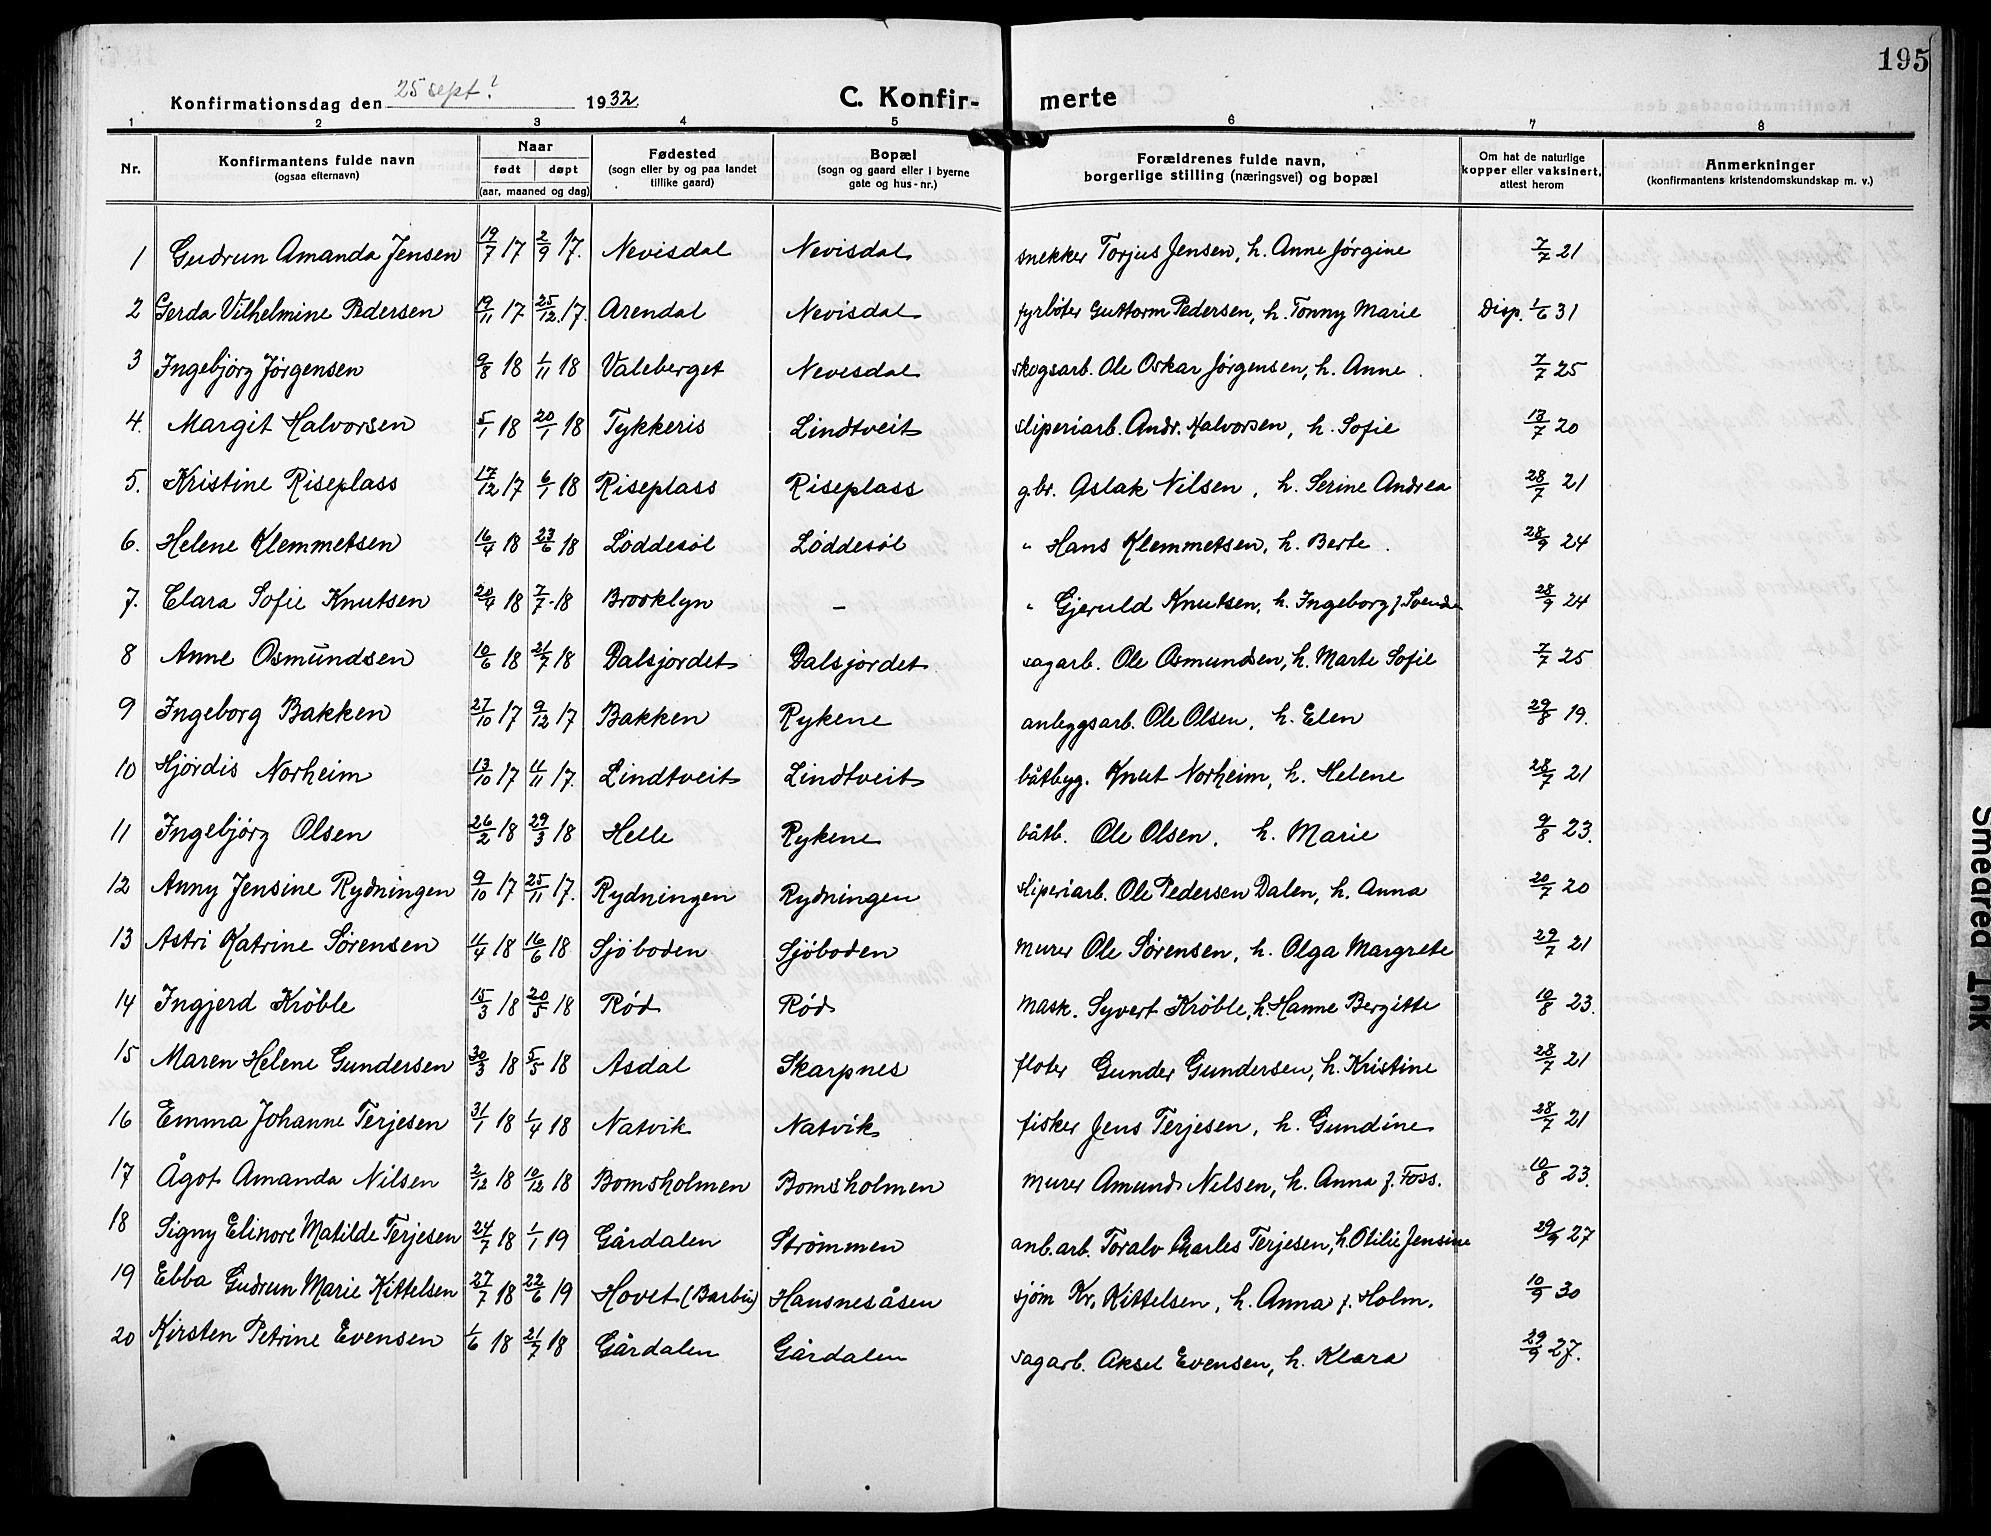 195
Konfirmationsdag den 25 sept? 1932. C. Konfir- merte
1 2 3 4 5 6 7 8
Nr. Konfirmantens fulde navn (ogsaa efternavn) Naar født døpt (aar, maaned og dag) Fødested (sogn eller by og paa landet tillike gaard) Bopæl (sogn og gaard eller i byerne gate og hus-nr.) Forældrenes fulde navn, borgerlige stilling (næringsvei) og bopæl Om hat de naturlige kopper eller vaksinert, attest herom Anmerkninger (konfirmantens kristendomskundskap m. v.)
1 Gudrun Amanda Jensen 19/7 17 2/9 17. Nevisdal Nevisdal snekker Torjus Jensen, h. Anne Jørgine 7/7 21
2 Gerda Vilhelmine Pedersen 19/11 17 25/12 17. Arendal Nevisdal fyrbøter Guttorm Pedersen, h. Tonny Marie Disp. 1/6 31
3 Ingebjørg Jørgensen 9/8 18 1/11 18 Valeberget Nevisdal skogsarb. Ole Oskar Jørgensen, h. Anne. 7/7 25
4. Margit Halvorsen 5/1 18 20/1 18 Tykkeris Lindtveit sliperiarb. Andr. Halvorsen, h. Sofie 13/7 20
5. Kristine Riseplass 17/12 17 6/1 18 Riseplass Riseplass g.br. Aslak Nilsen, h. Serine Andrea 28/7 21
6. Helene Klemmetsen 16/4 18 23/6 18 Løddesøl Løddesøl " Hans Klemmetsen, h. Berte. 28/9 24
7. Clara Sofie Knutsen 20/4 18 7/7 18 Brooklyn — " Gjeruld Knutsen, h. Ingeborg f. 28/9 24
8 Anne Osmundsen 10/6 18 21/7 18 Dalsjordet Dalsjordet sagarb. Ole Osmundsen, h. Marte Sofie 7/7 25
9 Ingeborg Bakken 27/10 17 9/12 17 Bakken Rykene anleggsarb. Ole Olsen, h. Elen 29/8 19.
10 Hjördis Norheim 13/10 17 11/11 17. Lindtveit Lindtveit båtbyg. Knut Norheim, h. Helene 28/7 21
11 Ingebjørg Olsen 26/2 18 29/3 18 Helle Rykene båtb. Ole Olsen. h. Marie 9/8 23.
12 Anny Jensine Rydningen 9/10 17 25/11 17. Rydningen Rydningen sliperiarb. Ole Pedersen Dalen, h. Anna 20/7 20
13 Astri Katrine Sørensen 11/4 18 16/6 18 Sjöboden Sjöboden murer Ole Sørensen, h. Olga Margrete 29/7 21
14 Ingjerd Kröble 15/3 18 20/5 18 Rød Rød mask. Syvert Kröble, h. Hanne Bergitte 10/8 23.
15 Maren Helene Gundersen 30/3 18 5/5 18 Asdal Skarpnes fløter Gunder Gundersen, h. Kristine 28/7 21
16 Emma Johanne Terjesen 31/1 18 1/4 18 Natvik Natvik fisker Jens Terjesen, h. Gundine 28/7 21
17 Ågot Amanda Nilsen 2/12 18 10/12 18 Bomsholmen Bomsholmen murer Amund Nilsen, h. Anna f. Foss. 10/8 23.
18 Signy Elinore Matilde Terjesen 24/7 18 1/1 19 Gårdalen Strømmen anl.arb. Toralv Charles Terjesen, h. Otilie Jensine 29/9 27
19 Ebba Gudrun Marie Kittelsen 27/7 18 22/6 19 Hovet (Barbu) Hausnesåsen sjøm Kr. Kittelsen, h. Anna f. Holm. 10/9 30
20 Kirsten Petrine Evensen 1/6 18 21/7 18 Gårdalen Gårdalen sagarb. Aksel Evensen, h. Klara 29/9 27.
Smeared Ink